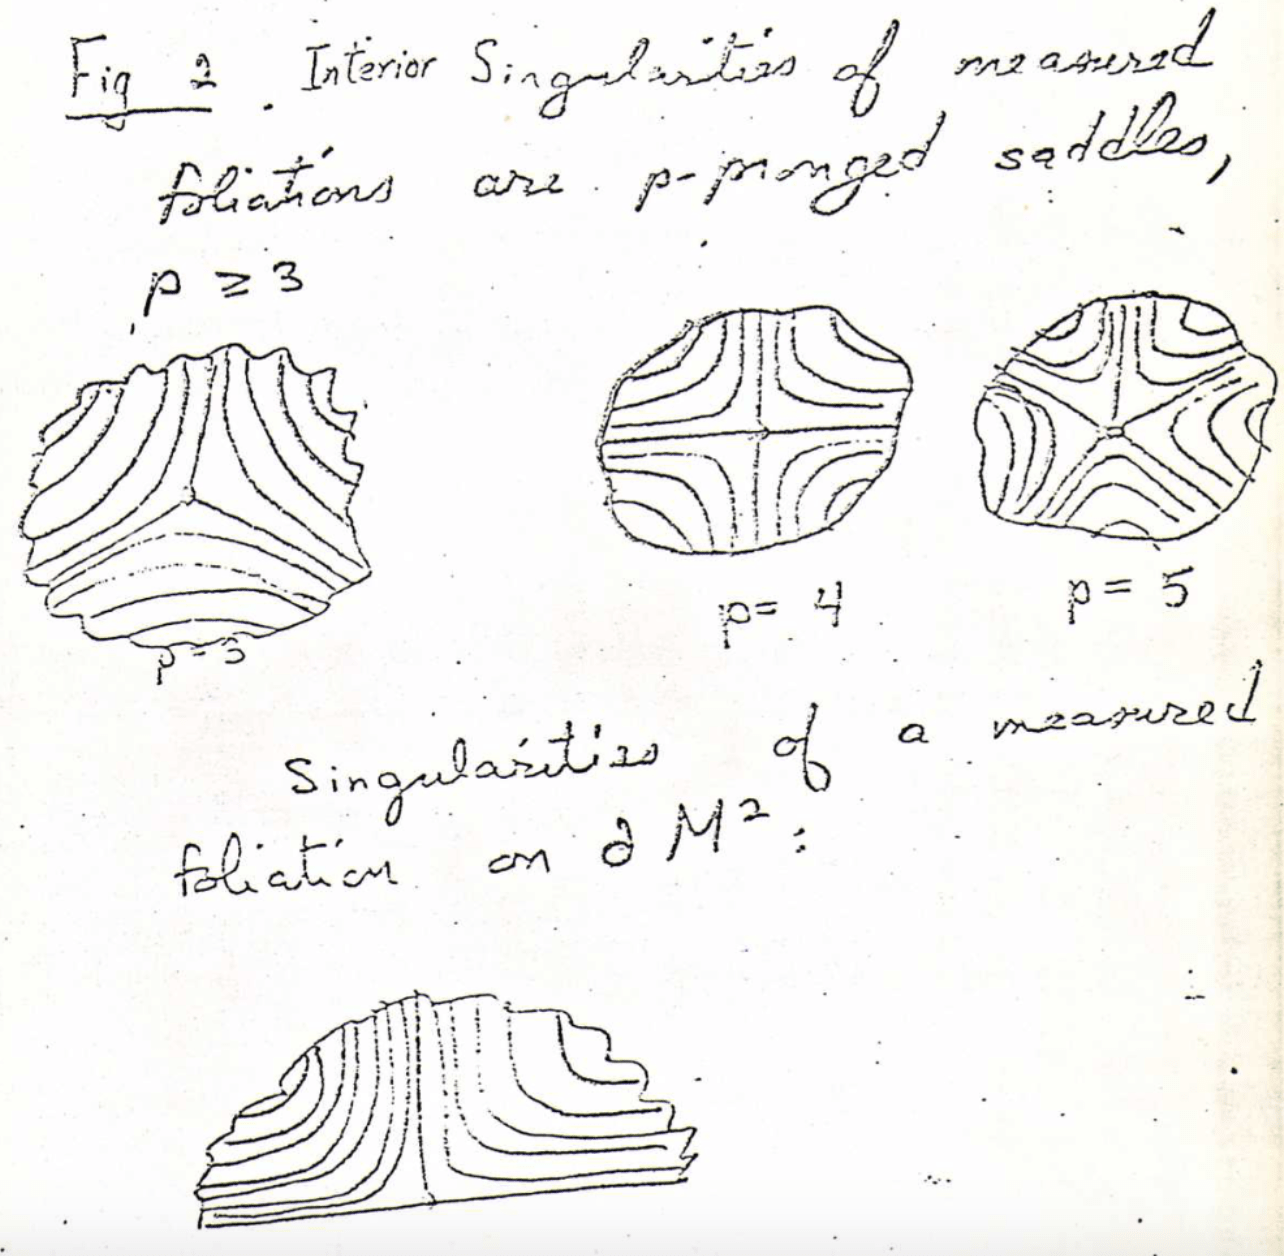 Fig 2. Interior Singularities of measured
foliations are p-pronged saddles,
p ≥ 3
p=3
p= 4
p= 5
Singularities of a measured
foliation on ∂ M²: